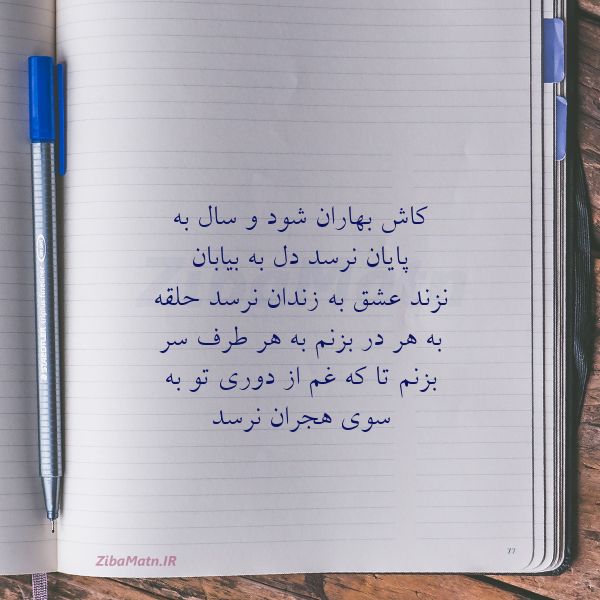 کاش بهاران شود و سال به
پایان نرسد دل به بیابان
نزند عشق به زندان نرسد حلقه
به هر در بزنم به هر طرف سر
بزنم تا که غم از دوری تو به
سوی هجران نرسد
77
ZibaMatn.IR